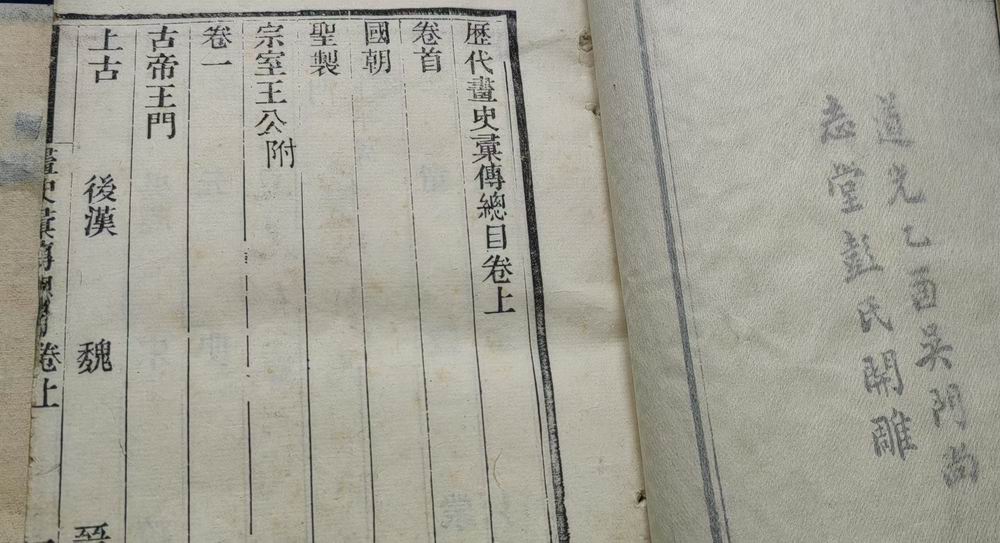 道光乙酉吳門尚
志堂彭氏開雕
歷代畫史彚傳總目卷上
卷首
國朝
聖製
宗室王公附
卷一
古帝王門
上古 後漢 魏 晉
畫史彚傳總目卷上